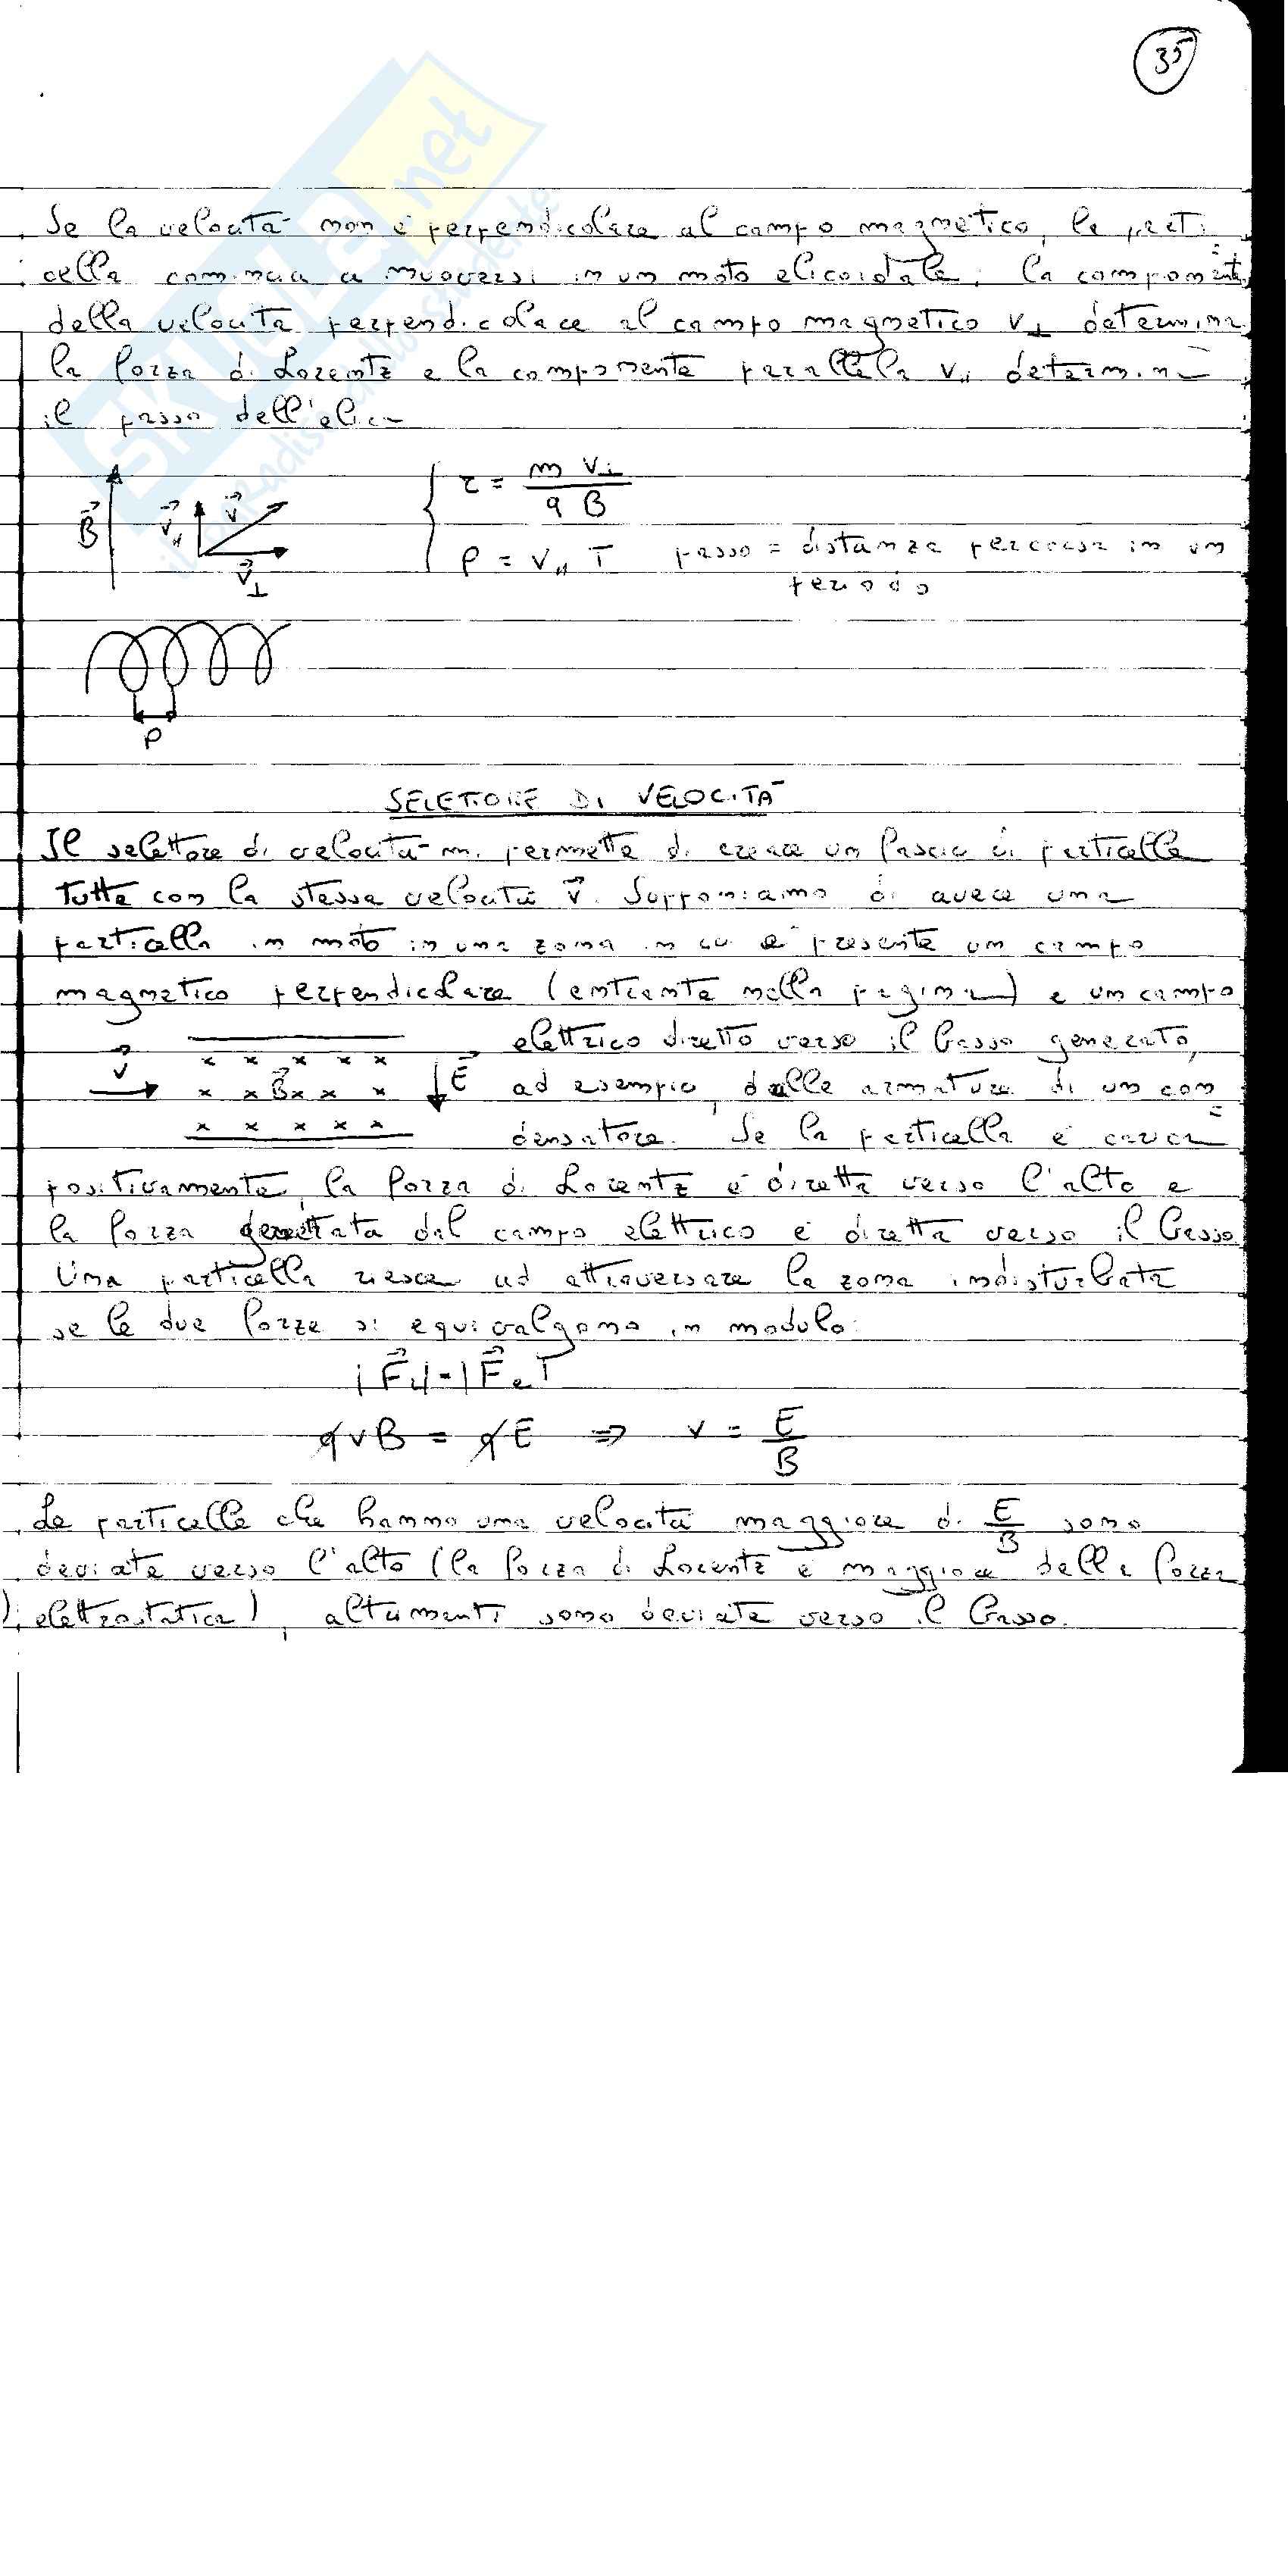 35
SKUOLA.net
il paradiso dello studente
Se la velocità non è perpendicolare al campo magnetico, la parti
cella comincia a muoversi in un moto elicoidale: la componente
della velocità perpendicolare al campo magnetico v⊥ determina
la forza di Lorentz e la componente parallela v∥ determina
il passo dell'elica
B⃗ v⃗∥ v⃗ v⃗⊥
r = m v⊥ / q B
P = v∥ T passo = distanza percorsa in un
periodo
P
SELETTORE DI VELOCITÀ
Il selettore di velocità mi permette di creare un fascio di particelle
tutte con la stessa velocità v⃗. Supponiamo di avere una
particella in moto in una zona in cui è presente un campo
magnetico perpendicolare (entrante nella pagina) e un campo
elettrico diretto verso il basso generato,
v⃗ x x x x x
x x B⃗ x x x E⃗
x x x x x
ad esempio, dalle armature di un con
densatore. Se la particella è carica
positivamente, la forza di Lorentz è diretta verso l'alto e
la forza generata dal campo elettrico è diretta verso il basso
Una particella riesce ad attraversare la zona indisturbata
se le due forze si equivalgono in modulo:
|F⃗L| = |F⃗e|
qvB = qE ⇒ v = E/B
Le particelle che hanno una velocità maggiore di E/B sono
deviate verso l'alto (la forza di Lorentz è maggiore della forza
elettrostatica), altrimenti sono deviate verso il basso.